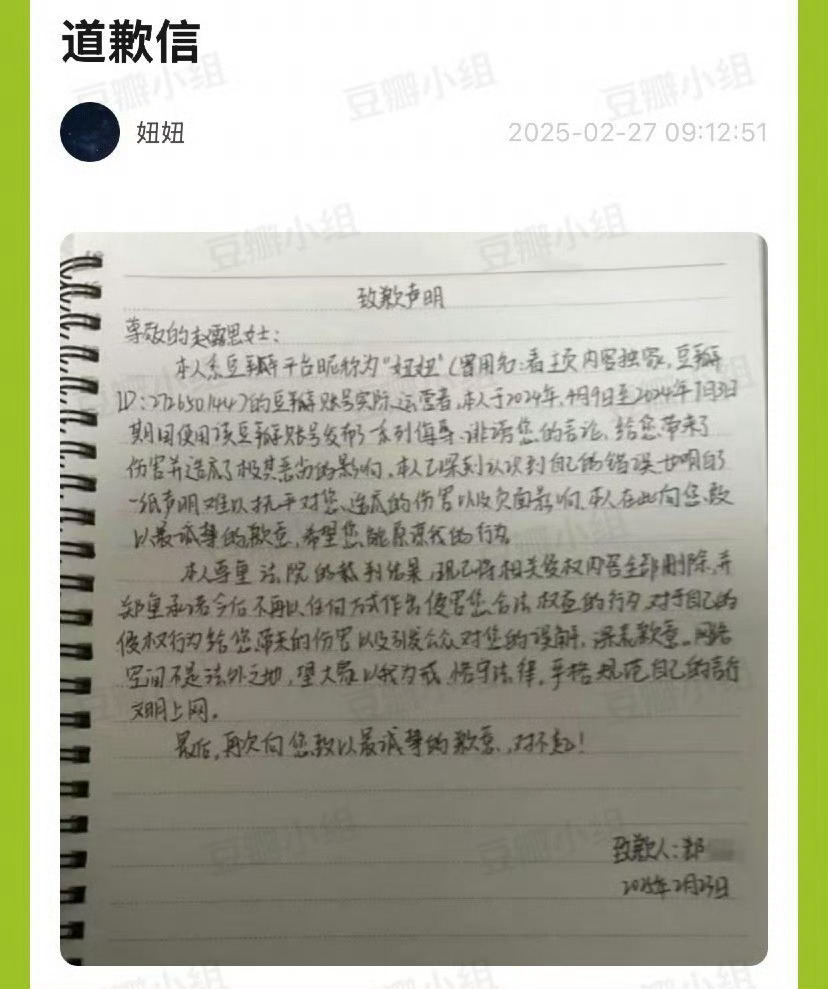 道歉信
妞妞
2025-02-27 09:12:51
致歉声明
尊敬的赵露思女士:
本人系豆瓣平台昵称为"妞妞"(曾用名:看主页内容独家,豆瓣
ID:272650144)的豆瓣账号实际运营者,本人于2024年4月9日至2024年7月3日
期间使用该豆瓣账号发布了系列侮辱、诽谤您的言论,给您带来了
伤害并造成了极其恶劣的影响。本人已深刻认识到自己的错误,也明白了
一纸声明难以抚平对您造成的伤害以及负面影响,本人在此向您致
以最诚挚的歉意,希望您能原谅我的行为
本人尊重法院的裁判结果,现已将相关侵权内容全部删除,并
郑重承诺今后不再以任何方式作出侵害您合法权益的行为,对于自己的
侵权行为给您带来的伤害以及引发公众对您的误解,深表歉意。网络
空间不是法外之地,望大家以我为戒,恪守法律,严格规范自己的言行
文明上网。
最后,再次向您致以最诚挚的歉意,对不起!
致歉人:郑
2025年2月23日
豆瓣小组